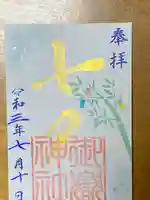 奉拝
七夕
神社
令和三年七月十日